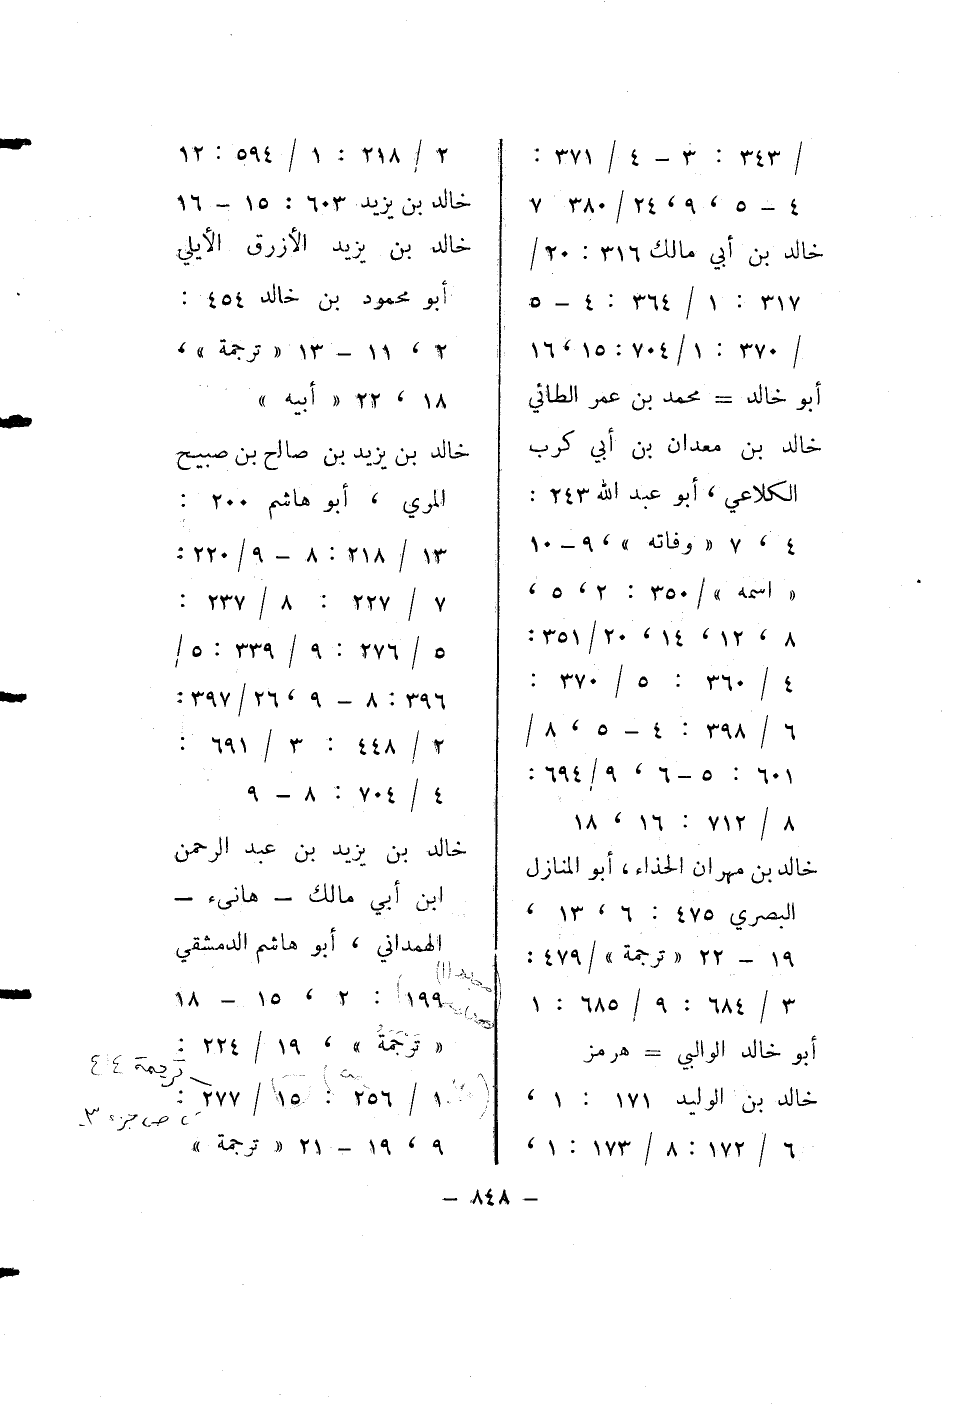 / ٣٤٣ : ٣ – ٤ / ٣٧١ :
٤ – ٥ ، ٩ ، ٢٤ / ٣٨٠ ٧
خالد بن أبي مالك ٣١٦ : ٢٠ /
٣١٧ : ١ / ٣٦٤ : ٤ – ٥
/ ٣٧٠ : ١ / ٧٠٤ : ١٥ ، ١٦
أبو خالد = محمد بن عمر الطائي
خالد بن معدان بن أبي كرب
الكلاعي ، أبو عبد الله ٢٤٣ :
٤ ، ٧ « وفاته » ، ٩ – ١٠
« اسمه » / ٣٥٠ : ٢ ، ٥ ،
٨ ، ١٢ ، ١٤ ، ٢٠ / ٣٥١ :
٤ / ٣٦٠ : ٥ / ٣٧٠ :
٦ / ٣٩٨ : ٤ – ٥ ، ٨ /
٦٠١ : ٥ – ٦ ، ٩ / ٦٩٤ :
٨ / ٧١٢ : ١٦ ، ١٨
خالد بن مهران الحذاء ، أبو المنازل
البصري ٤٧٥ : ٦ ، ١٣ ،
١٩ – ٢٢ « ترجمة » / ٤٧٩ :
٣ / ٦٨٤ : ٩ / ٦٨٥ : ١
أبو خالد الوالبي = هرمز
خالد بن الوليد ١٧١ : ١ ،
٦ / ١٧٢ : ٨ / ١٧٣ : ١ ،
٢ / ٢١٨ : ١ / ٥٩٤ : ١٢
خالد بن يزيد ٦٠٣ : ١٥ – ١٦
خالد بن يزيد الأزرق الأيلي
أبو محمود بن خالد ٤٥٤ :
٢ ، ١١ – ١٣ « ترجمة » ،
١٨ ، ٢٢ « أبيه »
خالد بن يزيد بن صالح بن صبيح
المري ، أبو هاشم ٢٠٠ :
١٣ / ٢١٨ : ٨ – ٩ / ٢٢٠ :
٧ / ٢٢٧ : ٨ / ٢٣٧ :
٥ / ٢٧٦ : ٩ / ٣٣٩ : ٥ /
٣٩٦ : ٨ – ٩ ، ٢٦ / ٣٩٧ :
٢ / ٤٤٨ : ٣ / ٦٩١ :
٤ / ٧٠٤ : ٨ – ٩
خالد بن يزيد بن عبد الرحمن
ابن أبي مالك – هانىء –
الهمداني ، أبو هاشم الدمشقي
١٩٩ : ٢ ، ١٥ – ١٨
« تَرْجَمَةُ » ، ١٩ / ٢٢٤ :
١ / ٢٥٦ : ١٥ / ٢٧٧ :
٩ ، ١٩ – ٢١ « ترجمة »
ترجمة ٤٤
ص جزء ٣
– ٨٤٨ –